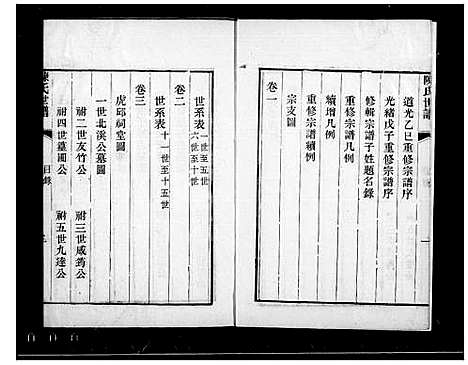 陳氏世譜
道光乙巳重修宗譜序
光緒戊子重修宗譜序
修輯宗譜子姓題名錄
重修宗譜凡例
續增凡例
重修宗譜續例
宗支圖
卷一
世系表 一世至五世 六世至十世
卷二
世系表 十一世至十五世
卷三
虎邱祠堂圖
一世北溪公墓圖
祔二世友竹公 祔三世咸筠公
祔四世蓮圃公 祔五世九逵公
陳氏世譜 目錄